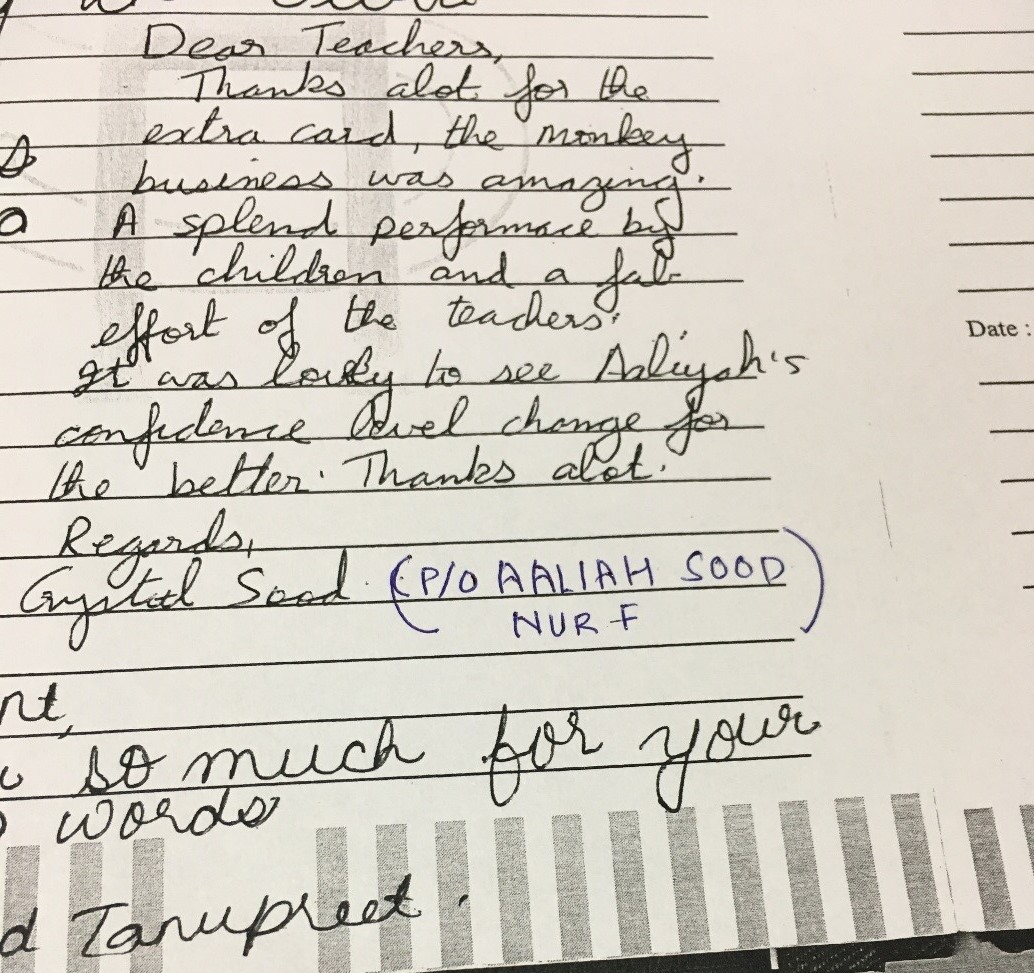 Dear Teachers,
Thanks alot for the
extra card, the monkey
business was amazing.
A splend performace by
the children and a fab
effort of the teachers.
It was lovely to see Aaliyah's
confidence level change for
the better. Thanks alot.
Regards,
Crystal Sood (P/O AALIAH SOOD
NUR F)
nt,
so much for your
words
d Tanupreet.
Date :